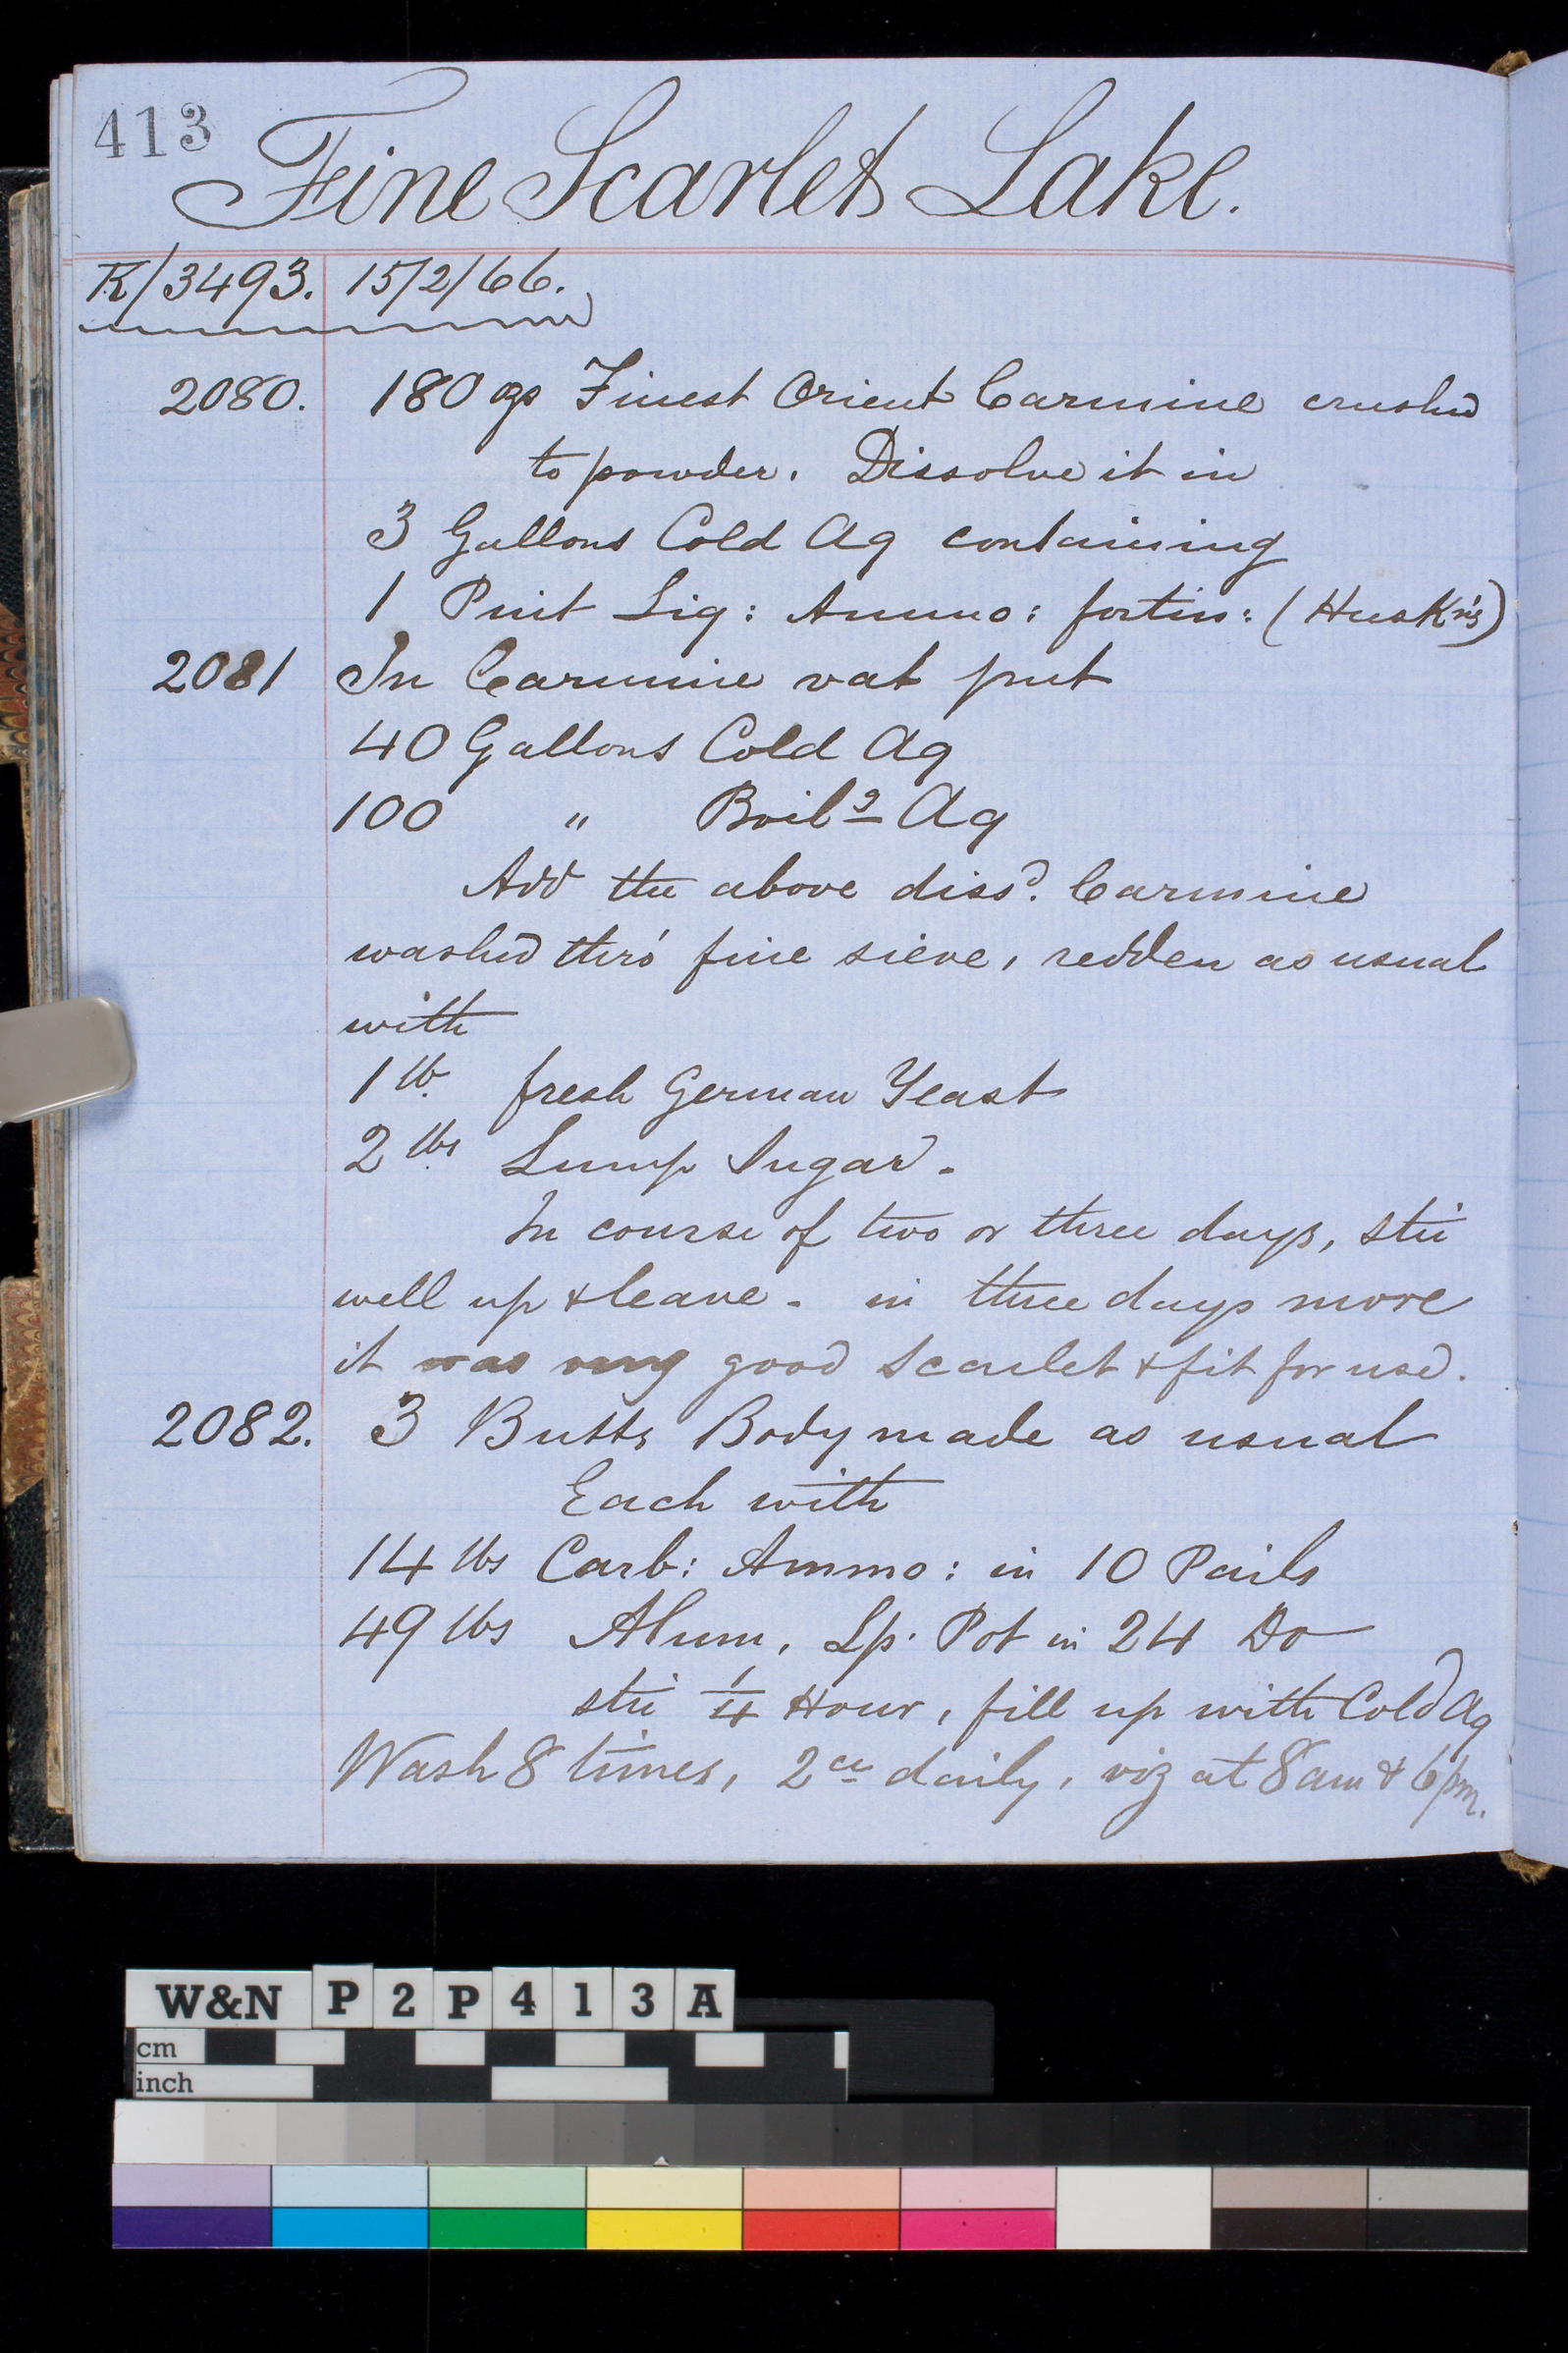 413
Fine Scarlet Lake.
K/3493. 15/2/66.
2080. 180 gs Finest Orient Carmine crushed
to powder. Dissolve it in
3 Gallons Cold Aq containing
1 Pint Liq: Ammo: fortiss: (Husk
2081 In Carmine vat put
40 Gallons Cold Aq
100 " Boilg Aq
Add the above dissd. Carmine
washed thro' fine sieve, redden as usual
with
1 lb. fresh German Yeast
2 lbs Lump Sugar.
In course of two or three days, stir
well up & leave - in three days more
it was very good Scarlet & fit for use.
2082. 3 Butts Body made as usual
Each with
14 lbs Carb: Ammo: in 10 Pails
49 lbs Alum, Lp. Pot in 24 Do
stir 1/4 Hour, fill up with Cold Aq
Wash 8 times, 2ce daily, viz at 8 am & 6 pm.
W&N P2P413A
cm
inch